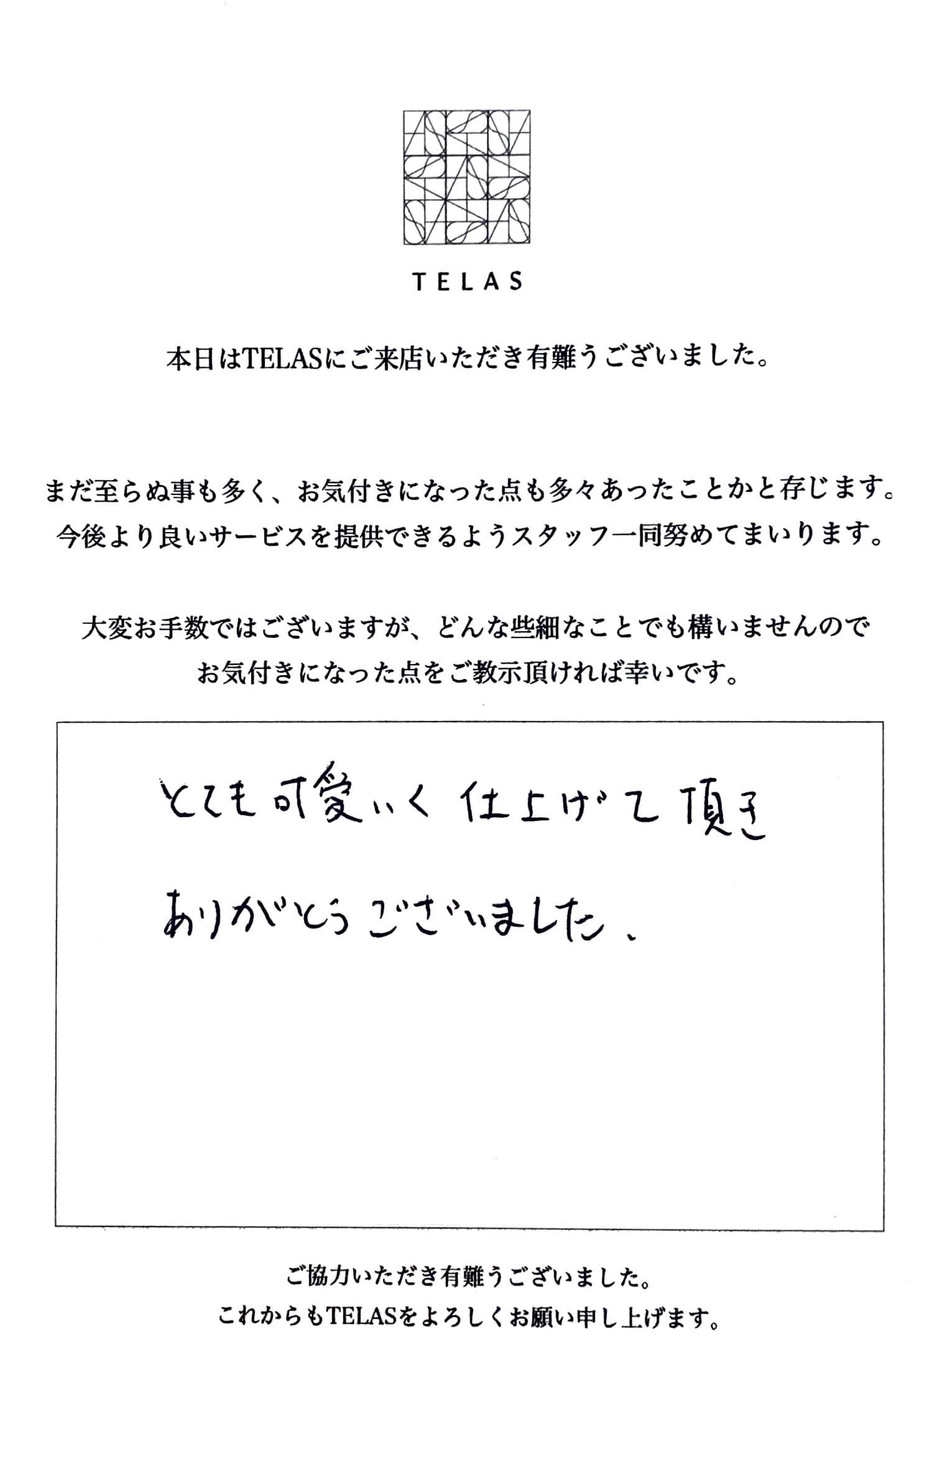 TELAS
本日はTELASにご来店いただき有難うございました。
まだ至らぬ事も多く、お気付きになった点も多々あったことかと存じます。
今後より良いサービスを提供できるようスタッフ一同努めてまいります。
大変お手数ではございますが、どんな些細なことでも構いませんので
お気付きになった点をご教示頂ければ幸いです。
とても可愛いく仕上げて頂き
ありがとうございました、
ご協力いただき有難うございました。
これからもTELASをよろしくお願い申し上げます。